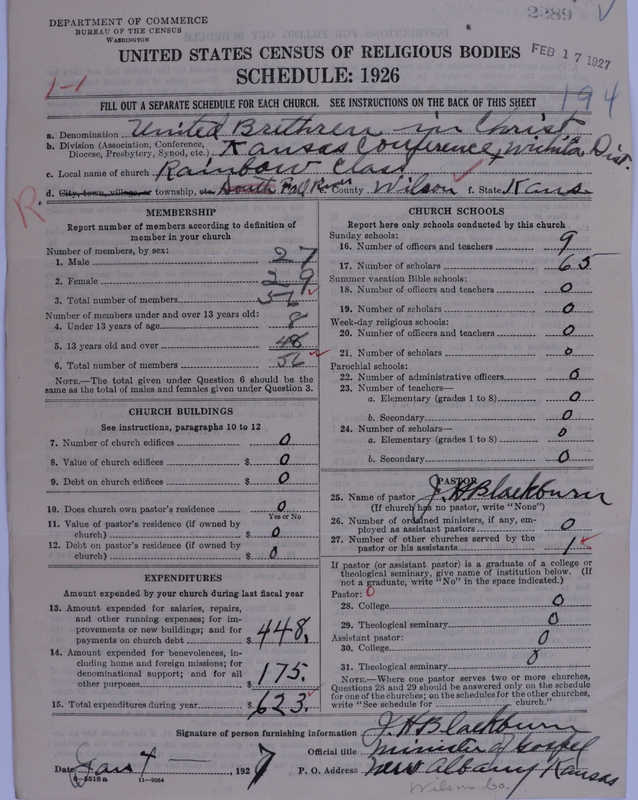 DEPARTMENT OF COMMERCE
BUREAU OF THE CENSUS
WASHINGTON
2289
FEB 17 1927
UNITED STATES CENSUS OF RELIGIOUS BODIES
SCHEDULE: 1926
1-1
194
FILL OUT A SEPARATE SCHEDULE FOR EACH CHURCH. SEE INSTRUCTIONS ON THE BACK OF THIS SHEET
a. Denomination United Brethren in Christ,
b. Division (Association, Conference, Diocese, Presbytery, Synod, etc.) Kansas Conference, Wichita Dist.
c. Local name of church Rainbow Class
d. City, town, village, or township, etc. South Fall River e. County Wilson f. State Kans
R
MEMBERSHIP
Report number of members according to definition of
member in your church
Number of members, by sex:
1. Male 27
2. Female 29
3. Total number of members 56
Number of members under and over 13 years old:
4. Under 13 years of age 8
5. 13 years old and over 48
6. Total number of members 56
NOTE.—The total given under Question 6 should be the
same as the total of males and females given under Question 3.
CHURCH BUILDINGS
See instructions, paragraphs 10 to 12
7. Number of church edifices 0
8. Value of church edifices $ 0
9. Debt on church edifices $ 0
10. Does church own pastor's residence 0
Yes or No
11. Value of pastor's residence (if owned by
church) $ 0
12. Debt on pastor's residence (if owned by
church) $ 0
EXPENDITURES
Amount expended by your church during last fiscal year
13. Amount expended for salaries, repairs,
and other running expenses; for im-
provements or new buildings; and for
payments on church debt $ 448.
14. Amount expended for benevolences, in-
cluding home and foreign missions; for
denominational support; and for all
other purposes $ 175.
15. Total expenditures during year $ 623.
CHURCH SCHOOLS
Report here only schools conducted by this church
Sunday schools:
16. Number of officers and teachers 9
17. Number of scholars 65
Summer vacation Bible schools:
18. Number of officers and teachers 0
19. Number of scholars 0
Week-day religious schools:
20. Number of officers and teachers 0
21. Number of scholars 0
Parochial schools:
22. Number of administrative officers 0
23. Number of teachers—
a. Elementary (grades 1 to 8) 0
b. Secondary 0
24. Number of scholars—
a. Elementary (grades 1 to 8) 0
b. Secondary 0
PASTOR
25. Name of pastor J. H. Blackburn
(If church has no pastor, write "None")
26. Number of ordained ministers, if any, em-
ployed as assistant pastors 0
27. Number of other churches served by the
pastor or his assistants 1
If pastor (or assistant pastor) is a graduate of a college or
theological seminary, give name of institution below. (If
not a graduate, write "No" in the space indicated.)
Pastor: 0
28. College 0
29. Theological seminary 0
Assistant pastor: 0
30. College
31. Theological seminary 0
NOTE.—Where one pastor serves two or more churches,
Questions 28 and 29 should be answered only on the schedule
for one of the churches; on the schedules for the other churches,
write "See schedule for church."
Signature of person furnishing information J. H. Blackburn
Official title Minister of Gospel
Date Jan 4 1927 P. O. Address New Albany Kansas
8-5518 a 11-9564
Wilson Co.